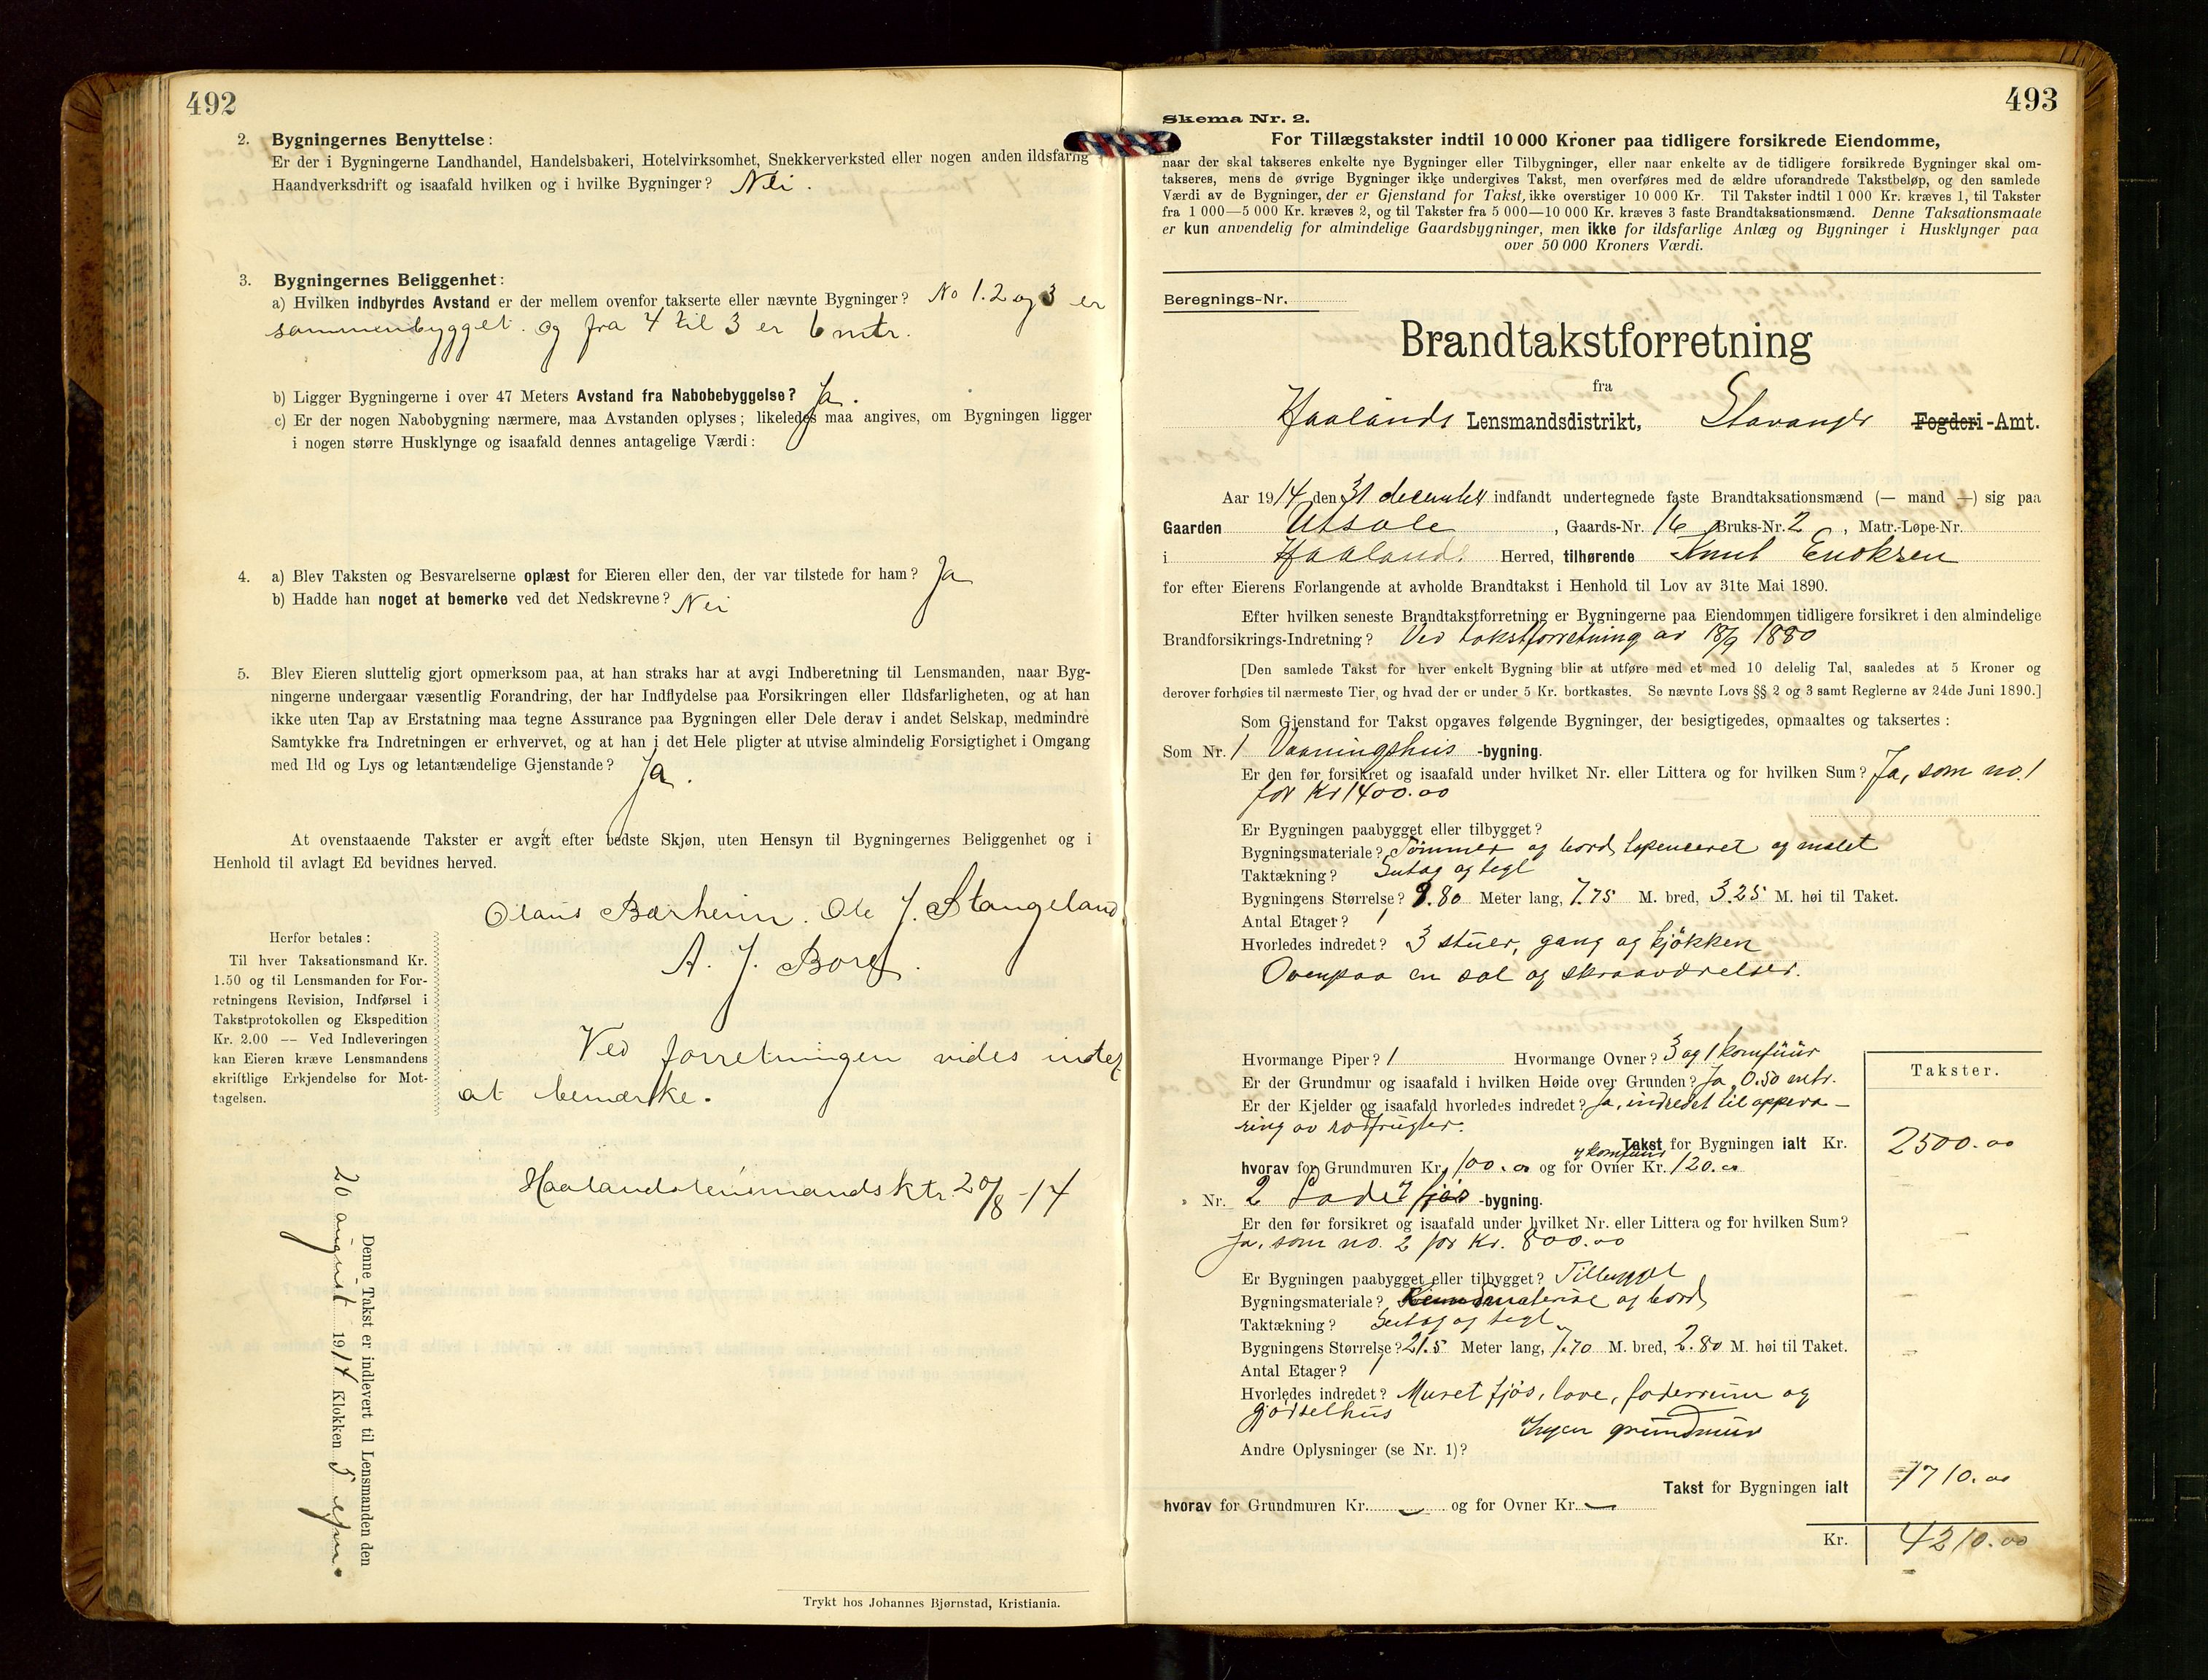 492
2. Bygningernes Benyttelse:
Er der i Bygningerne Landhandel, Handelsbakeri, Hotelvirksomhet, Snekkerverksted eller nogen anden ildsfarlig
Haandverksdrift og isaafald hvilken og i hvilke Bygninger? Nei.
3. Bygningernes Beliggenhet:
a) Hvilken indbyrdes Avstand er der mellem ovenfor takserte eller nævnte Bygninger? No 1. 2 og 3 er
sammenbygget. og fra 4 til 3 er 6 mtr.
b) Ligger Bygningerne i over 47 Meters Avstand fra Nabobebyggelse? Ja.
c) Er der nogen Nabobygning nærmere, maa Avstanden oplyses; likeledes maa angives, om Bygningen ligger
i nogen større Husklynge og isaafald dennes antagelige Værdi:
4. a) Blev Taksten og Besvarelserne oplæst for Eieren eller den, der var tilstede for ham? Ja
b) Hadde han noget at bemerke ved det Nedskrevne? Nei
5. Blev Eieren sluttelig gjort opmerksom paa, at han straks har at avgi Indberetning til Lensmanden, naar Byg-
ningerne undergaar væsentlig Forandring, der har Indflydelse paa Forsikringen eller Ildsfarligheten, og at han
ikke uten Tap av Erstatning maa tegne Assurance paa Bygningen eller Dele derav i andet Selskap, medmindre
Samtykke fra Indretningen er erhvervet, og at han i det Hele pligter at utvise almindelig Forsigtighet i Omgang
med Ild og Lys og letantændelige Gjenstande? Ja.
At ovenstaaende Takster er avgit efter bedste Skjøn, uten Hensyn til Bygningernes Beliggenhet og i
Henhold til avlagt Ed bevidnes herved.
Olaus Bærheim. Ole J. Stangeland
A. J. Bore.
Herfor betales:
Til hver Taksationsmand Kr.
1.50 og til Lensmanden for For-
retningens Revision, Indførsel i
Takstprotokollen og Ekspedition
Kr. 2.00 — Ved Indleveringen
kan Eieren kræve Lensmandens
skriftlige Erkjendelse for Mot-
tagelsen.
Ved forretningen vides intet
at bemærke.
Haalands lensmandsktr. 20/8 -14
Denne Takst er indlevert til Lensmanden den
20 august 1914 Klokken 5 efm.
Trykt hos Johannes Bjørnstad, Kristiania.
493
Skema Nr. 2.
For Tillægstakster indtil 10 000 Kroner paa tidligere forsikrede Eiendomme,
naar der skal takseres enkelte nye Bygninger eller Tilbygninger, eller naar enkelte av de tidligere forsikrede Bygninger skal om-
takseres, mens de øvrige Bygninger ikke undergives Takst, men overføres med de ældre uforandrede Takstbeløp, og den samlede
Værdi av de Bygninger, der er Gjenstand for Takst, ikke overstiger 10 000 Kr. Til Takster indtil 1 000 Kr. kræves 1, til Takster
fra 1 000—5 000 Kr. kræves 2, og til Takster fra 5 000—10 000 Kr. kræves 3 faste Brandtaksationsmænd. Denne Taksationsmaate
er kun anvendelig for almindelige Gaardsbygninger, men ikke for ildsfarlige Anlæg og Bygninger i Husklynger paa
over 50 000 Kroners Værdi.
Beregnings-Nr.
Brandtakstforretning
fra
Haalands Lensmandsdistrikt, Stavanger Fogderi-Amt.
Aar 1914, den 31 december indfandt undertegnede faste Brandtaksationsmænd (— mand —) sig paa
Gaarden Utsole, Gaards-Nr. 16 Bruks-Nr. 2, Matr.-Løpe-Nr.
i Haalands Herred, tilhørende Knut Enoksen
for efter Eierens Forlangende at avholde Brandtakst i Henhold til Lov av 31te Mai 1890.
Efter hvilken seneste Brandtakstforretning er Bygningerne paa Eiendommen tidligere forsikret i den almindelige
Brandforsikrings-Indretning? Ved takstforretning av 18/9 1880
[Den samlede Takst for hver enkelt Bygning blir at utføre med et med 10 delelig Tal, saaledes at 5 Kroner og
derover forhøies til nærmeste Tier, og hvad der er under 5 Kr. bortkastes. Se nævnte Lovs §§ 2 og 3 samt Reglerne av 24de Juni 1890.]
Som Gjenstand for Takst opgaves følgende Bygninger, der besigtigedes, opmaaltes og taksertes:
Som Nr. 1 Vaaningshus -bygning.
Er den før forsikret og isaafald under hvilket Nr. eller Littera og for hvilken Sum? Ja, som no. 1
for Kr 1400.00
Er Bygningen paabygget eller tilbygget?
Bygningsmateriale? Tømmer og bord, og malet
Taktækning? Sutag og tegl
Bygningens Størrelse? 9.80 Meter lang, 7.75 M. bred, 3.25 M. høi til Taket.
Antal Etager? 1
Hvorledes indredet? 3 stuer, gang og kjøkken
Ovenpaa en sal og skraaværelser.
Hvormange Piper? 1 Hvormange Ovner? 3 og 1 komfuur
Er der Grundmur og isaafald i hvilken Høide over Grunden? Ja, 0.50 mtr.
Er der Kjelder og isaafald hvorledes indredet? Ja, indredet til oppeva-
ring av rodfrugter.
Takster.
Takst for Bygningen ialt Kr. 2500.00
hvorav for Grundmuren Kr. 100.00 og for Ovner og komfuur Kr. 120.00
Nr. 2 Lade og fjøs -bygning.
Er den før forsikret og isaafald under hvilket Nr. eller Littera og for hvilken Sum?
Ja, som no. 2 for Kr. 800.00
Er Bygningen paabygget eller tilbygget? Tilbygget
Bygningsmateriale? og bord
Taktækning? Sutag og tegl
Bygningens Størrelse? 21.5 Meter lang, 7.70 M. bred, 2.80 M. høi til Taket.
Antal Etager? 1
Hvorledes indredet? Muret fjøs, love, foderrum og
gjødselhus
Ingen grundmur
Andre Oplysninger (se Nr. 1)?
Takst for Bygningen ialt 1710.00
hvorav for Grundmuren Kr. — og for Ovner Kr. —
Kr. 4210.00